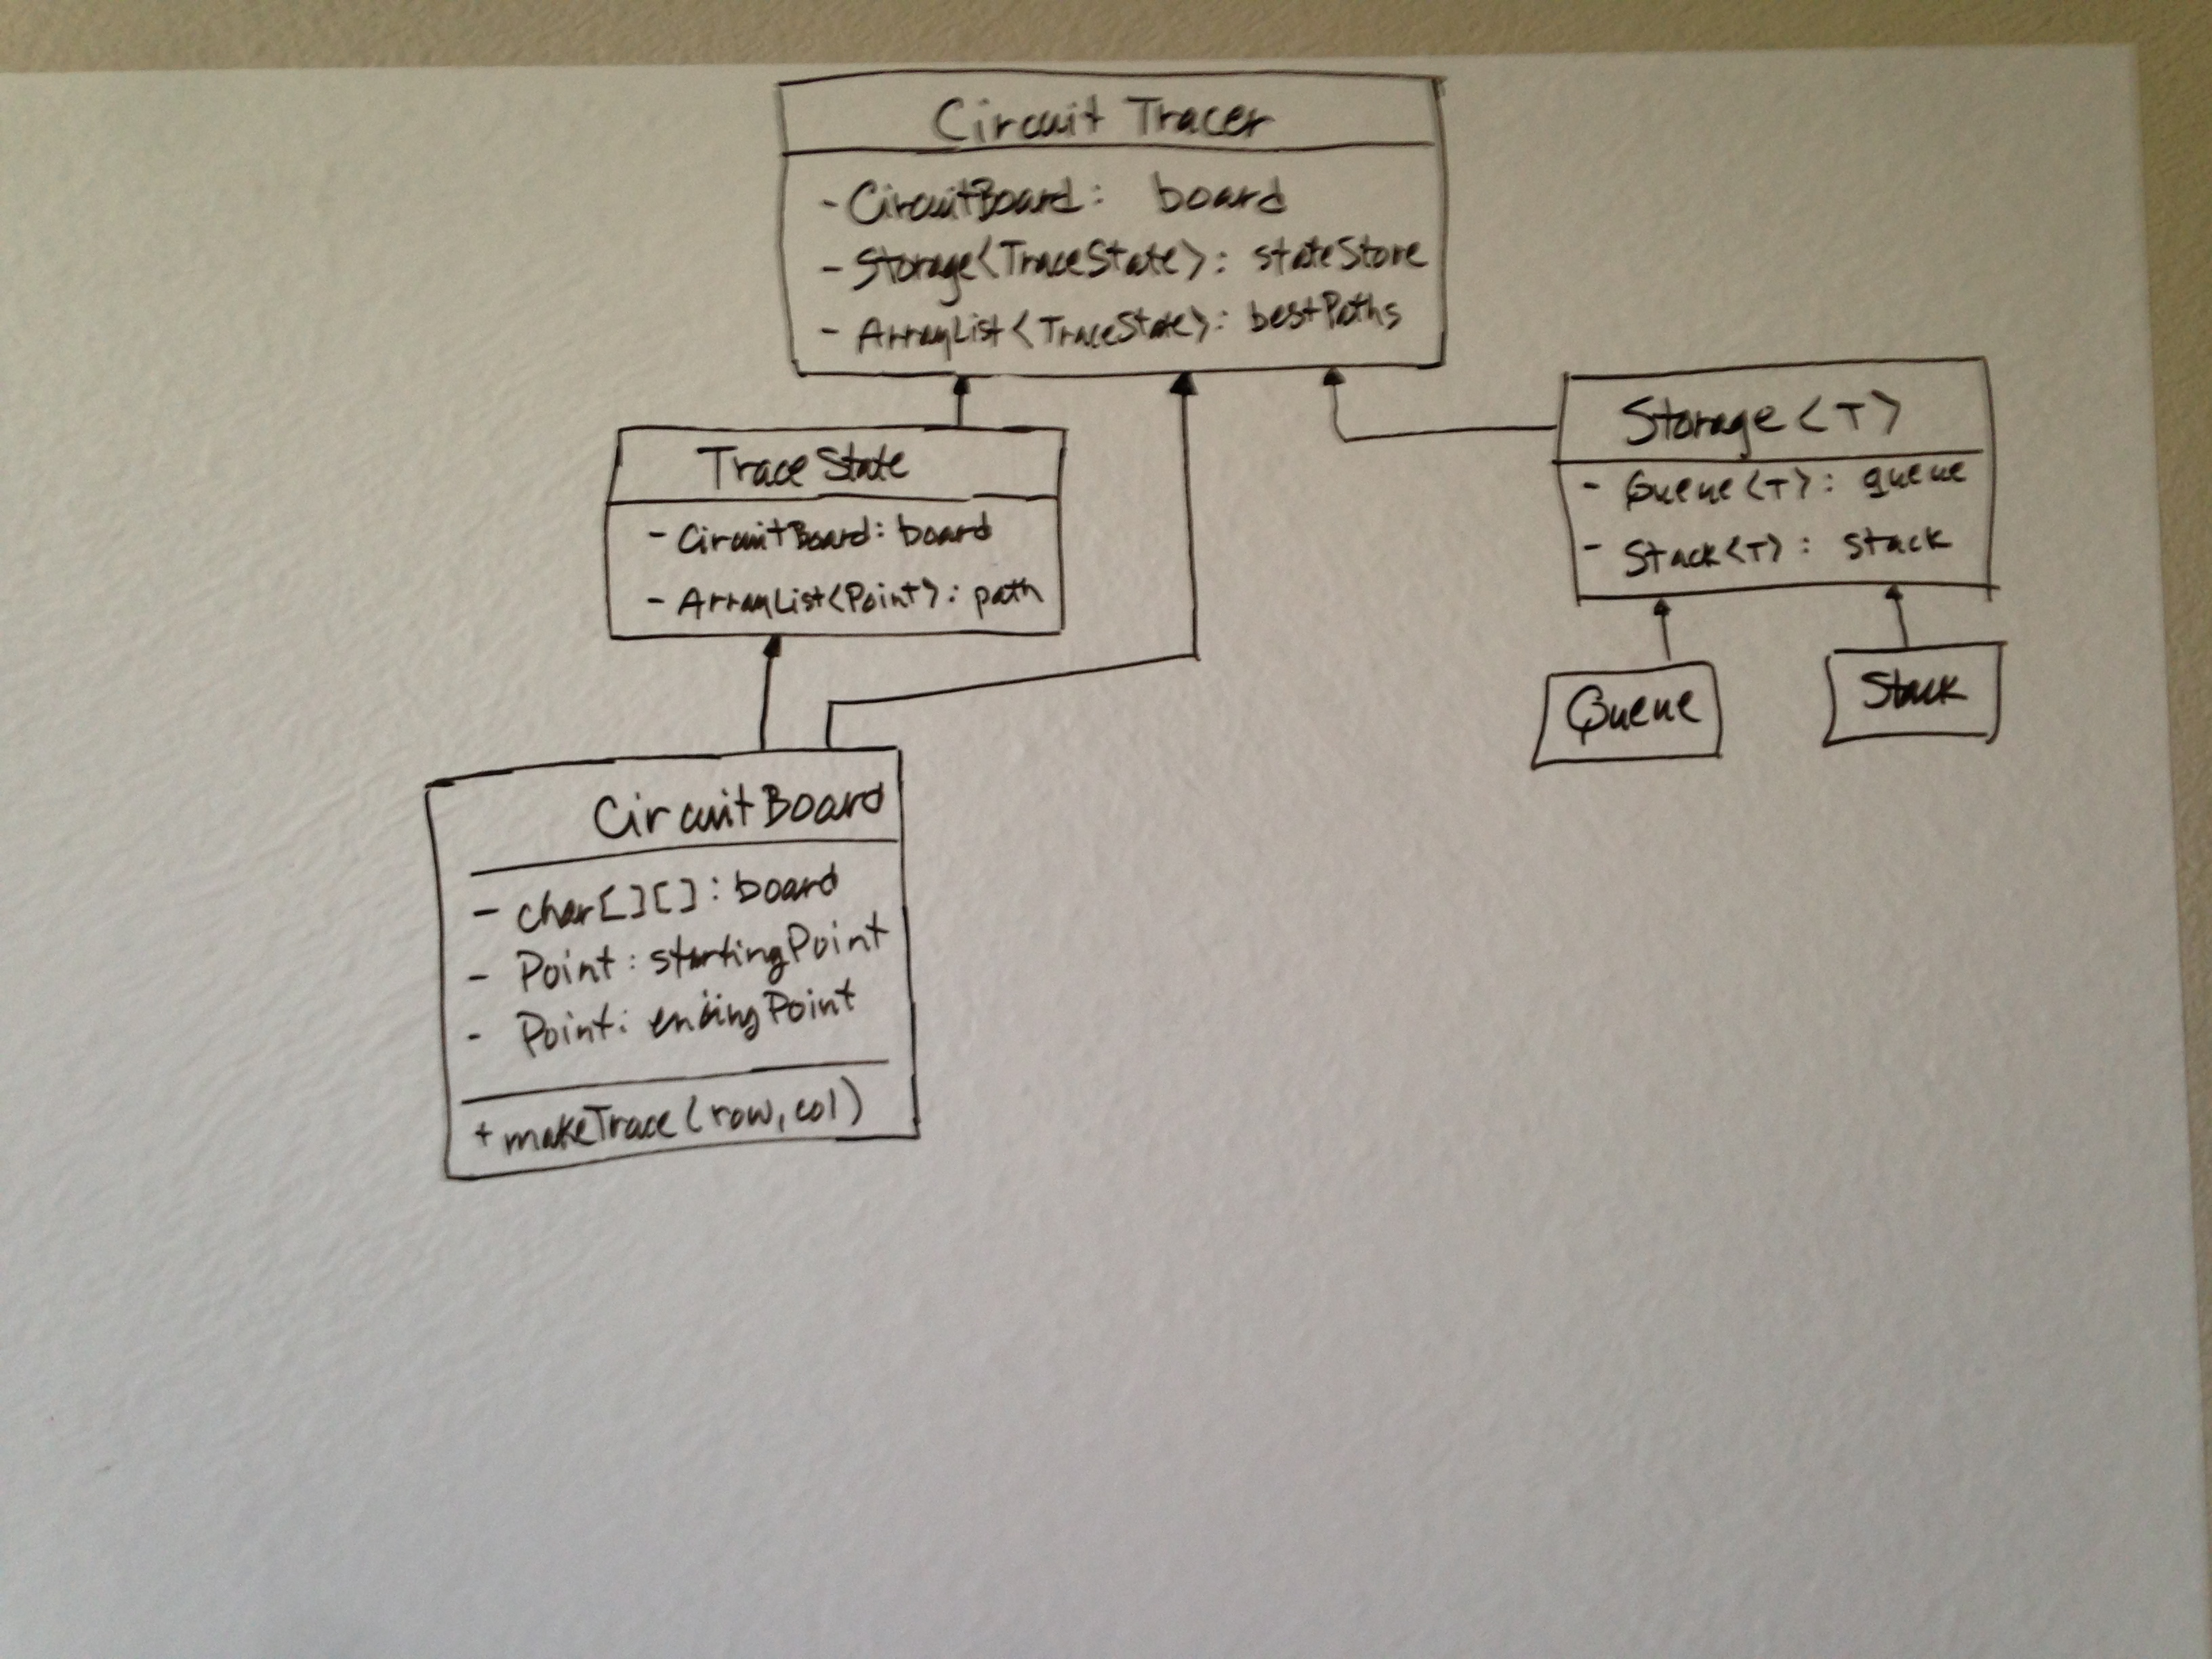 Circuit Tracer
- CircuitBoard: board
- Storage<TraceState>: stateStore
- ArrayList<TraceState>: bestPaths
TraceState
- CircuitBoard: board
- ArrayList<Point>: path
Storage<T>
- Queue<T>: queue
- Stack<T>: stack
Queue
Stack
CircuitBoard
- char[][]: board
- Point: startingPoint
- Point: endingPoint
+ makeTrace(row, col)